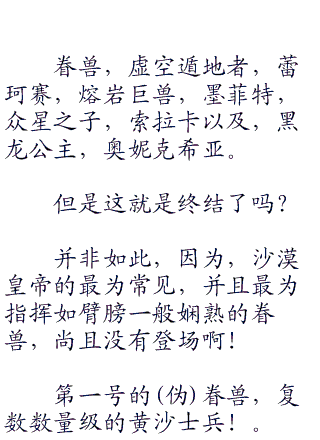 眷兽，虚空遁地者，蕾
珂赛，熔岩巨兽，墨菲特，
众星之子，索拉卡以及，黑
龙公主，奥妮克希亚。
但是这就是终结了吗？
并非如此，因为，沙漠
皇帝的最为常见，并且最为
指挥如臂膀一般娴熟的眷
兽，尚且没有登场啊！
第一号的(伪)眷兽，复
数数量级的黄沙士兵！。